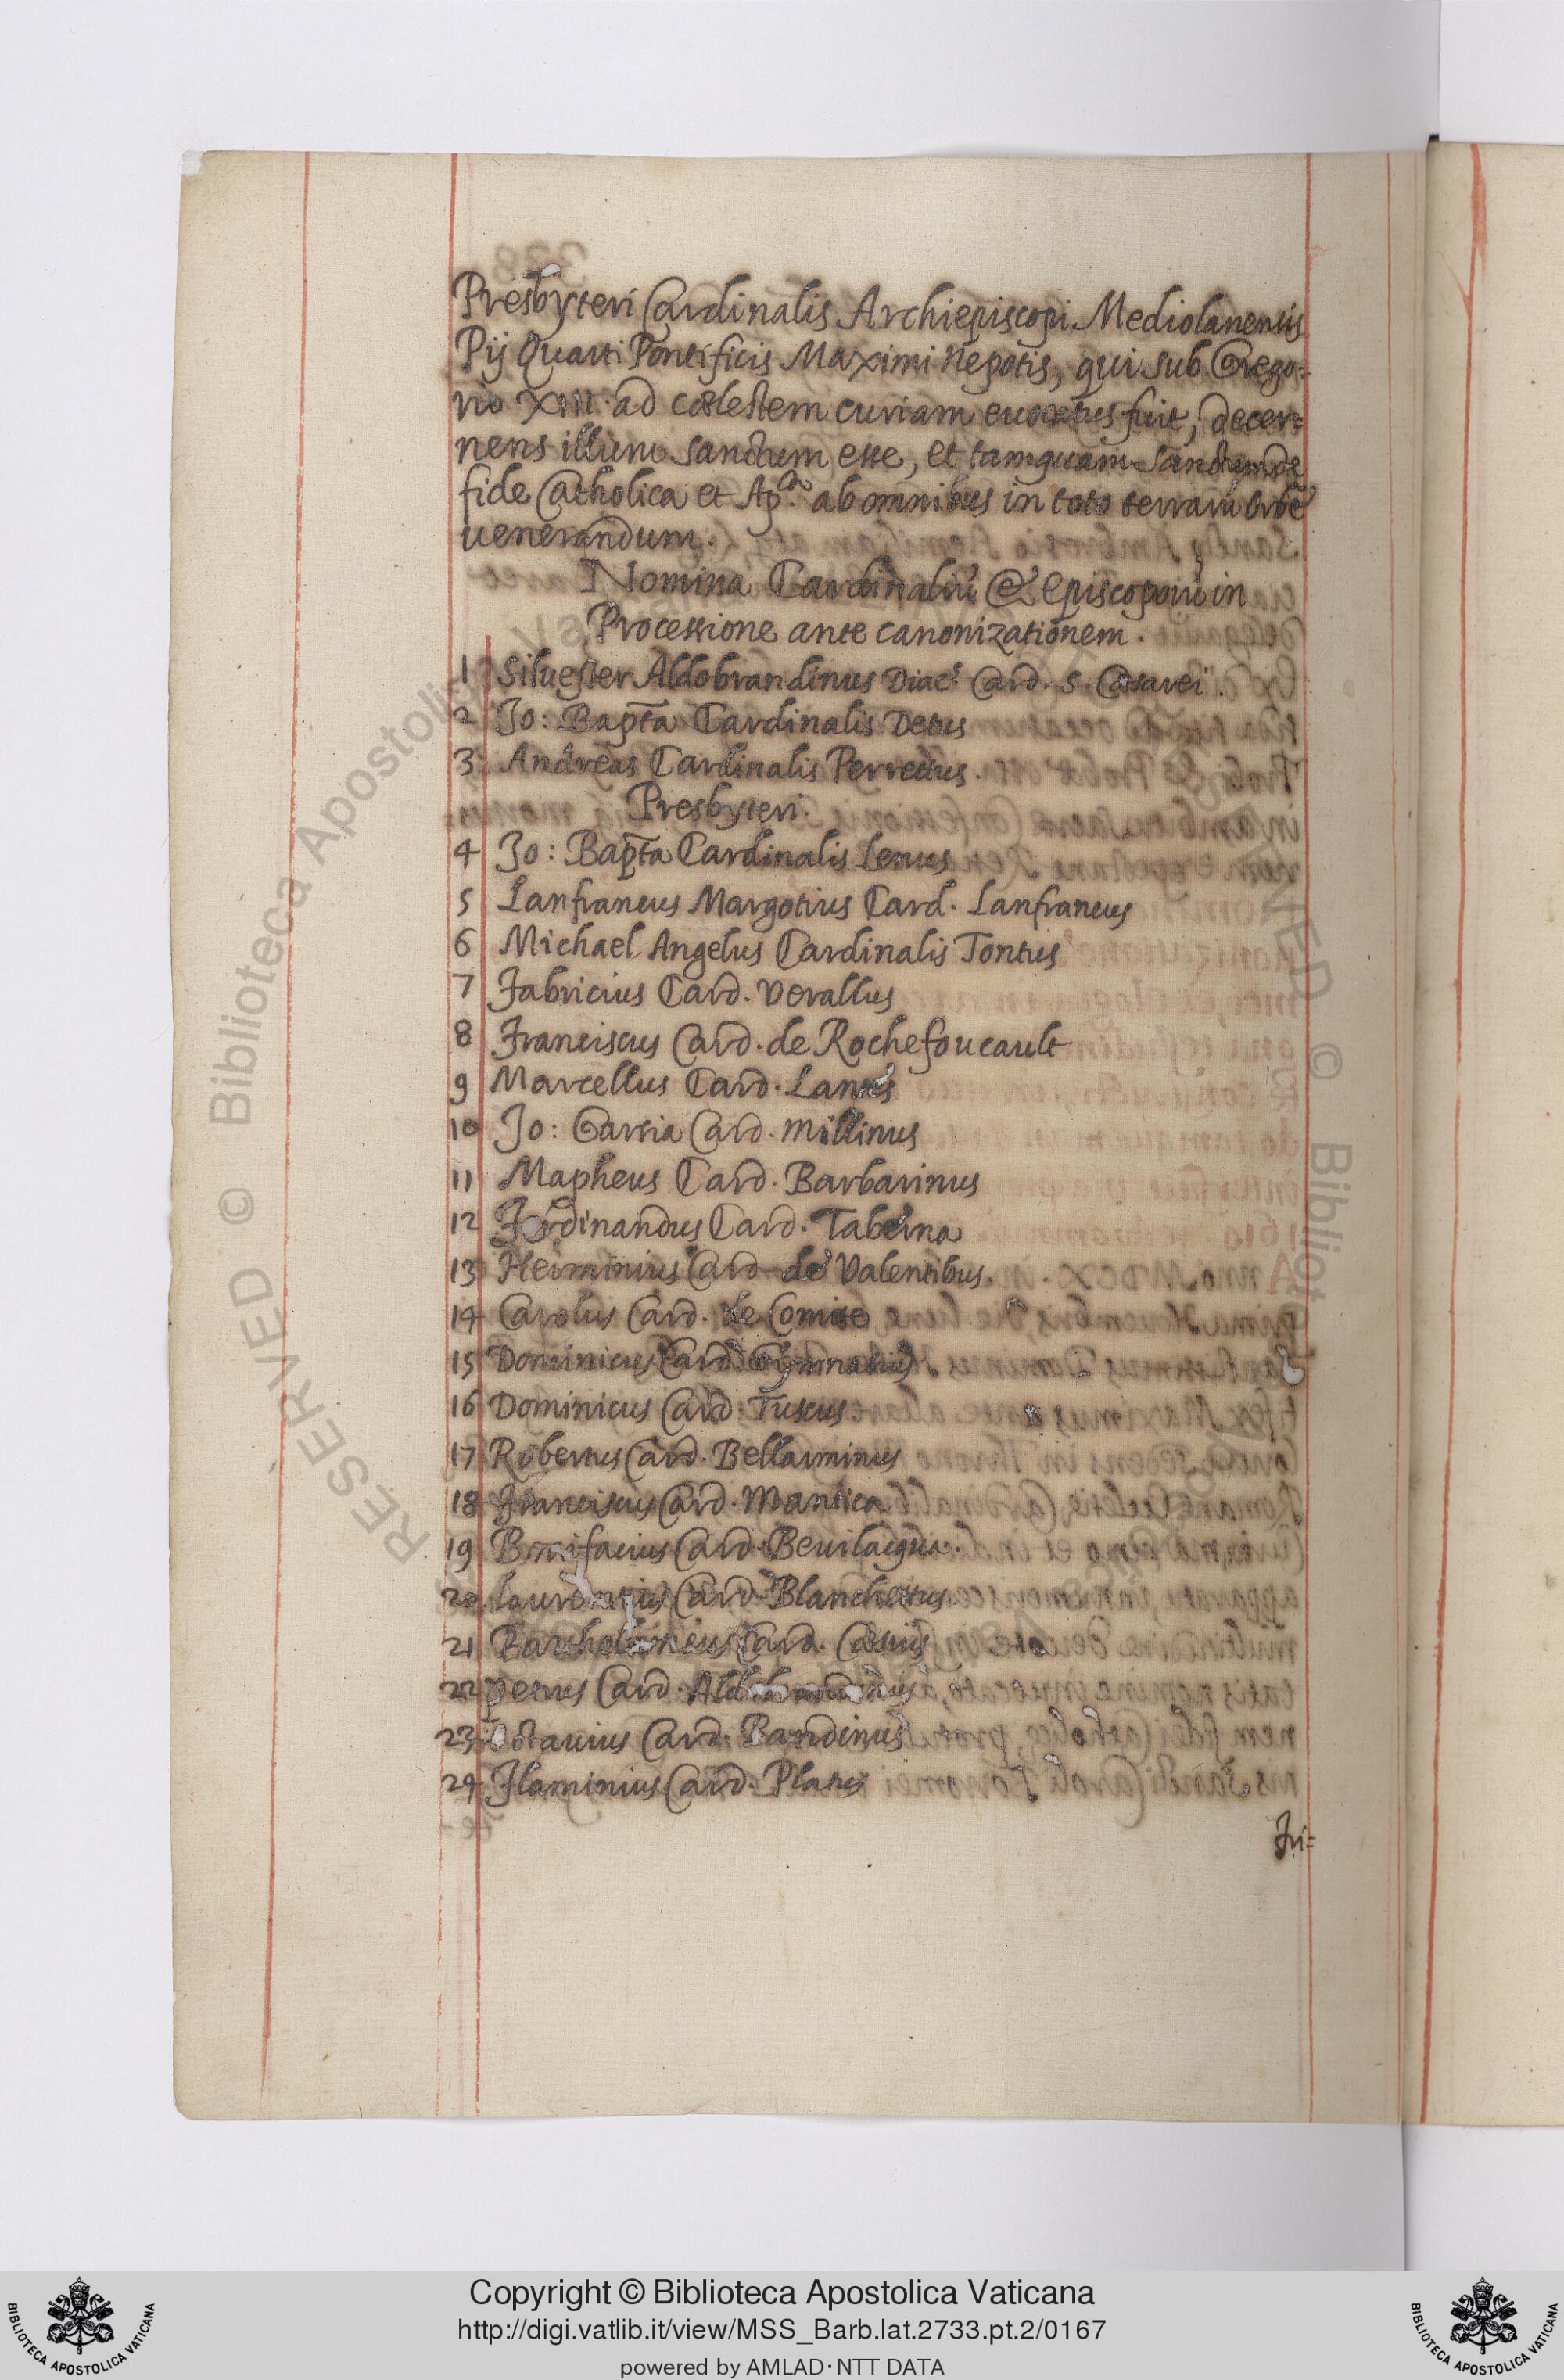 Presbyteri Cardinalis Archiepiscopi Mediolanensis
Pij Quarti Pontificis Maximi Nepotis, qui sub Grego=
rio XIII. ad cœlestem curiam euocatus fuit, decer=
nens illum sanctum esse, et tamquam sanctum de
fide Catholica et Ap.ca ab omnibus in toto terraru orbe
uenerandum.
Nomina Cardinaliū & Episcoporū in
Processione ante canonizationem.
1 Siluester Aldobrandinus Diac.s Card. S. Cæsarei.
2 Jo: Bapta Cardinalis Detus
3 Andreas Cardinalis Perretius.
Presbyteri.
4 Jo: Bapta Cardinalis Lenus
5 Lanfrancus Margotius Card. Lanfrancus
6 Michael Angelus Cardinalis Tontus
7 Fabricius Card. Verallus
8 Franciscus Card. de Rochefoucault
9 Marcellus Card. Lantes
10 Jo: Garsia Card. Millinus
11 Mapheus Card. Barbarinus
12 Ferdinandus Card. Taberna
13 Herminius Card. de Valentibus.
14 Carolus Card. de Comite
15 Dominicus Card. Gymnasius
16 Dominicus Card. Tuscus.
17 Robertus Card. Bellarminus
18 Franciscus Card. Mantica
19 Bonifacius Card. Beuilaqua.
20 Laurentius Card. Blanchettus
21 Bartholomeus Card. Cæsius
22 Petrus Card. Aldobrandinus
23 Octauius Card. Bandinus
24 Flaminius Card. Platus
Fri=
RESERVED © Biblioteca Apostolica Vaticana
RESERVED © Biblioteca Apostolica Vaticana
Copyright © Biblioteca Apostolica Vaticana
http://digi.vatlib.it/view/MSS_Barb.lat.2733.pt.2/0167
powered by AMLAD·NTT DATA
BIBLIOTECA APOSTOLICA VATICANA
BIBLIOTECA APOSTOLICA VATICANA